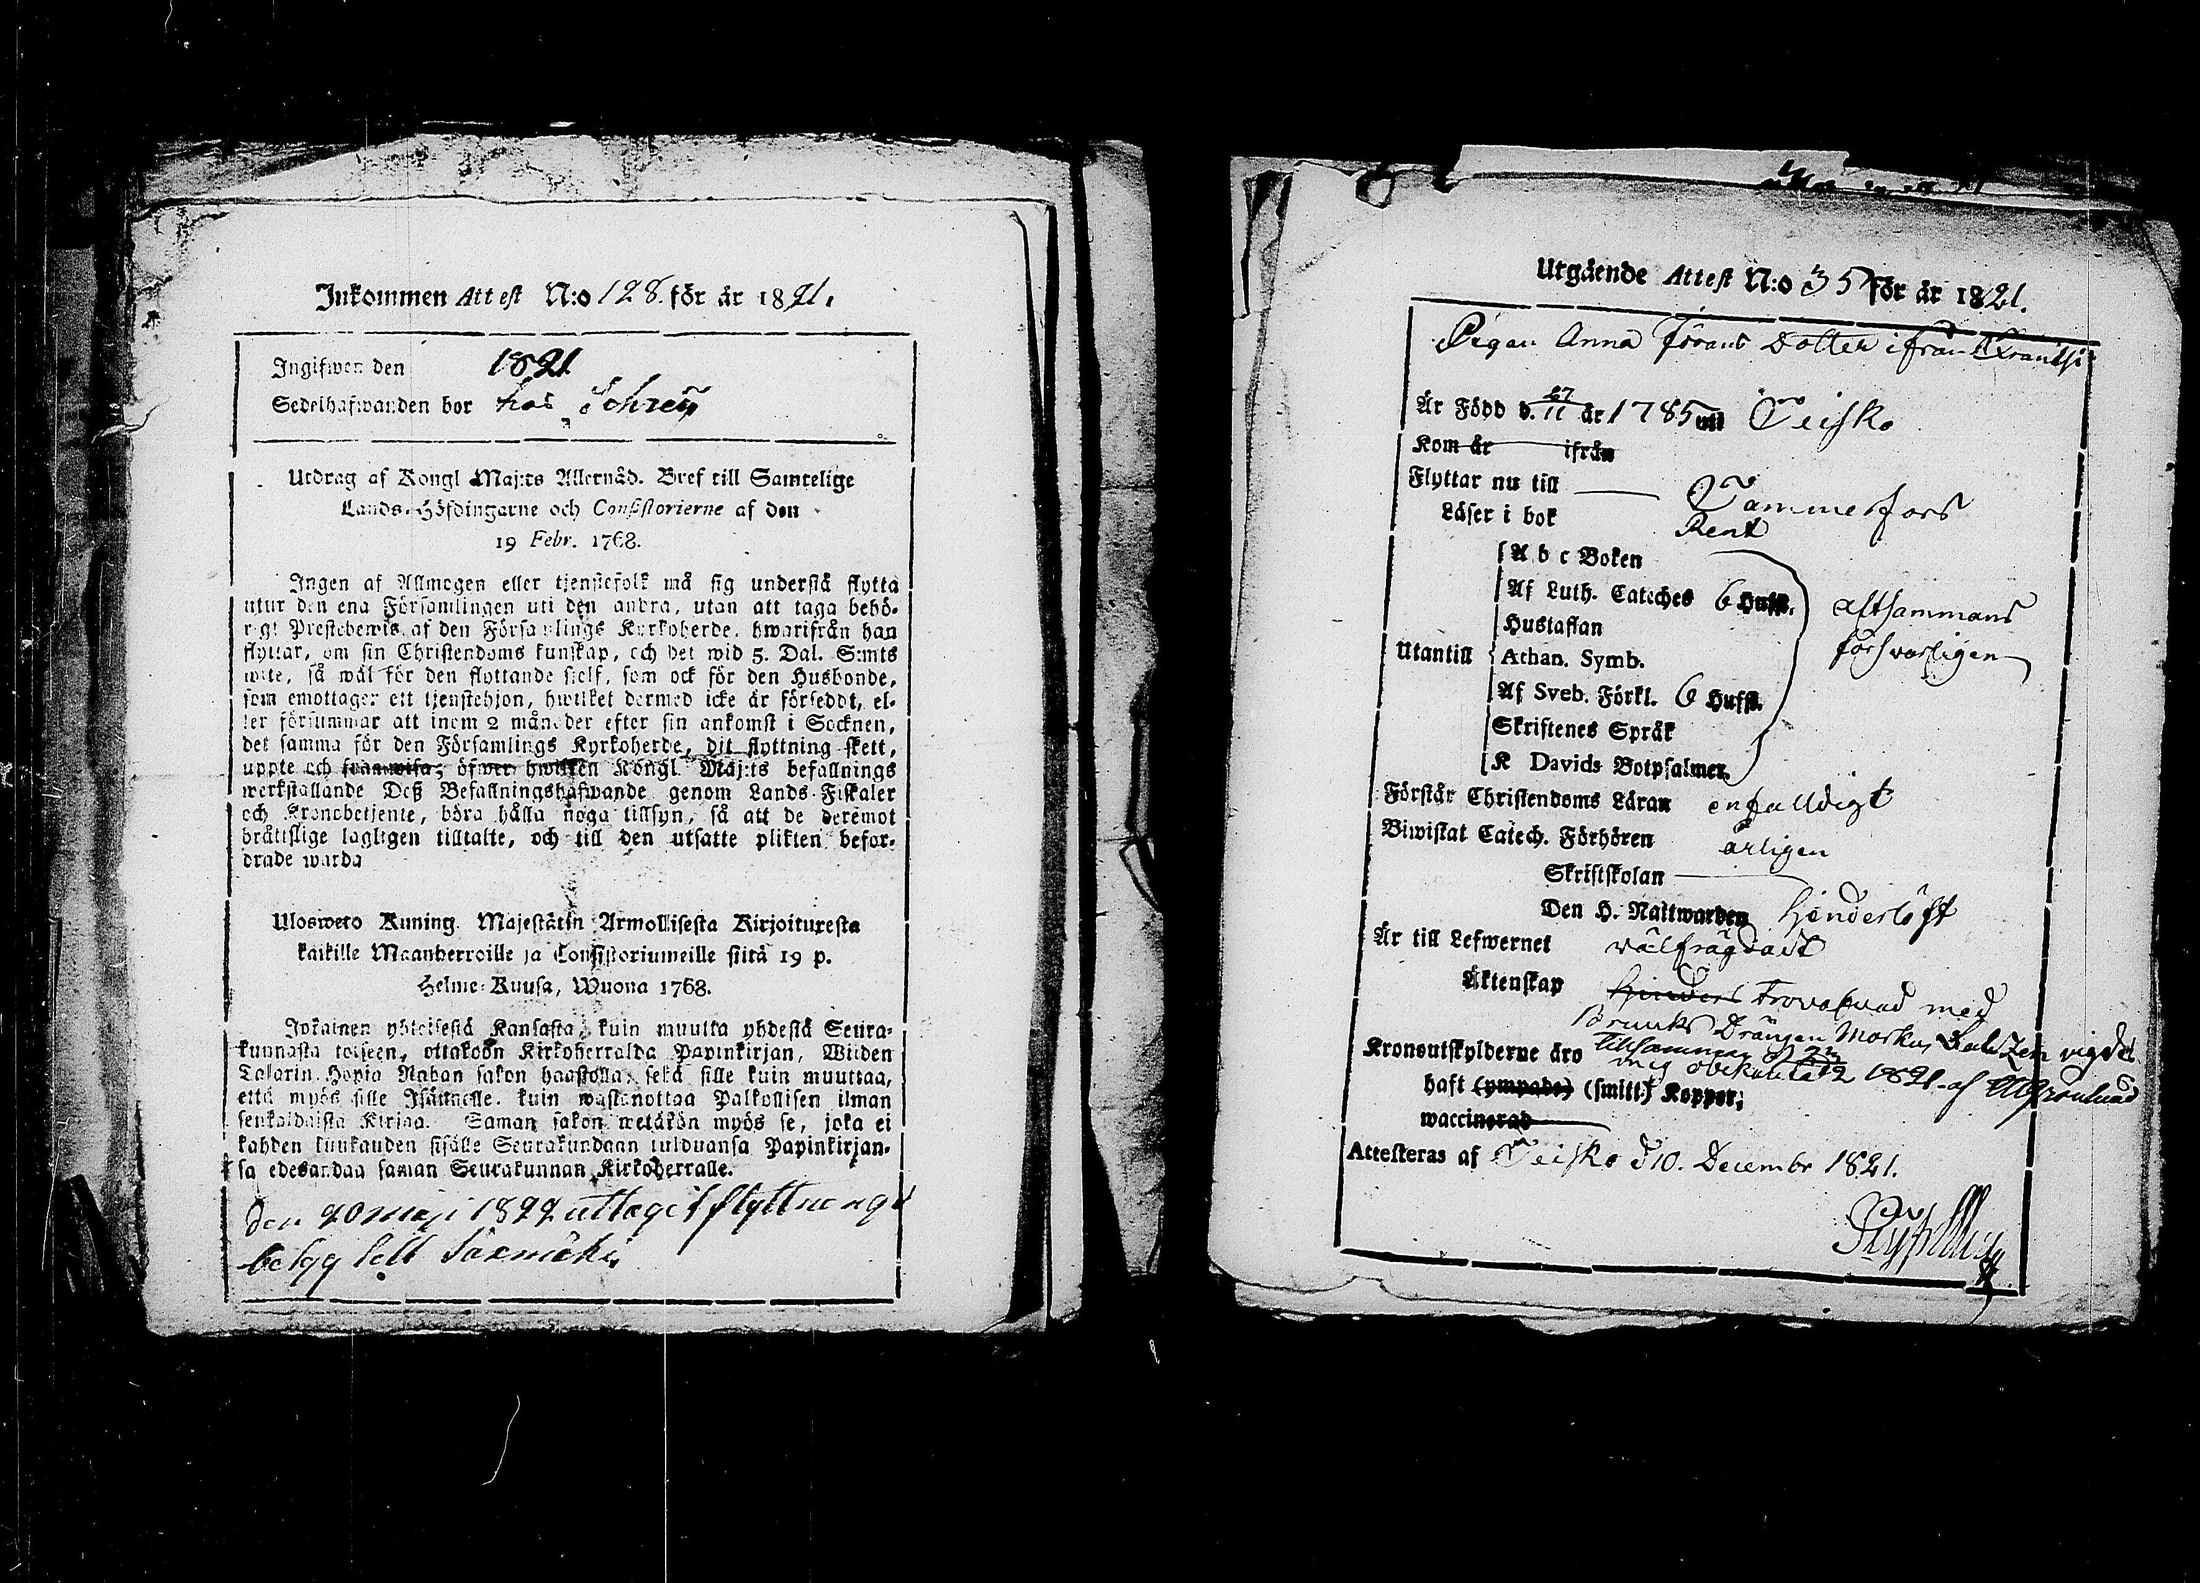 Inkommen Attest N:o 128. för år 1821.
Ingifwen den 1821
Sedelhafwanden bor hos
Utdrag af Kongl Maj:ts Allernåd. Bref till Samtelige
Lands-Höfdingarne och Consistorierne af den
19 Febr. 1768.
Ingen af Allmogen eller tjenstefolk må sig understå flytta
utur den ena Församlingen uti den andra, utan att taga behö-
rigt Prestebewis af den Församlings Kyrkoherde, hwarifrån han
flyttar, om sin Christendoms kunskap, och det wid 5. Dal. S:mts
wite, så wäl för den flyttande sielf, som ock för den Husbonde,
som emottager ett tjenstehjon, hwilket dermed icke är förseddt, el-
ler försummar att inom 2 månader efter sin ankomst i Socknen,
det samma för den Församlings Kyrkoherde, dit flyttning skett,
uppte och framwisa; öfwer hwilken Kongl Maj:ts befallnings
werkställande Deß Befallningshafwande genom Lands-Fiskaler
och Kronobetjente, böra hålla noga tillsyn, så att de deremot
brättslige lagligen tilltalte, och till den utsatte plikten befor-
drade warda
Ulosweto Kuning. Majestätin Armollisesta Kirjoituxesta
kaikille Maanherroille ja Consistoriumeille siitä 19 p.
Helme-Kuusa, Wuona 1768.
Jokainen yhteisestä Kansasta, kuin muutta yhdestä Seura-
kunnasta toiseen, ottakoon Kirkoherralda Papinkirjan, Wiiden
Talarin Hopia Rahan sakon haastolla, sekä sille kuin muuttaa,
että myös sille Isännelle, kuin wastanottaa Palkollisen ilman
senkaldaista Kirjaa. Saman sakon wetäkön myös se, joka ei
kahden kuukauden sisälle Seurakundaan tulduansa Papinkirjan-
sa edesandaa saman Seurakunnan Kirkoherralle.
den 20 maji 1822 uttagit flyttnings
betyg till Säxmäki
Utgående Attest N:o 35 för år 1821.
Pigan Anna Görans Dotter ifrån
Är Född d. 27/11 år 1785 uti Teisko
Kom år ifrån
Flyttar nu till Tammerfors
Läser i bok Rent
A b c Boken
Af Luth. Cateches 6 Hufst. altsammans
Hustaflan försvarligen
Utantill Athan. Symb.
Af Sveb. Förkl. 6 Hufst.
Skriftenes Språk
K Davids Botpsalmer.
Förstår Christendoms Läran enfalldigt
Biwistat Catech. Förhören årligen
Skriftskolan
Den H. Nattwarden hinderlöst
Är till Lefwernet välfrägdad
Äktenskap hinders trolofvad med
Bruuks Drängen Markus vigde
Kronoutskylderne äro tillsammans
1821 af
haft (ympade) (smitt) Koppor;
waccinerad
Attesteras af Teisko d 10. Decembr 1821.